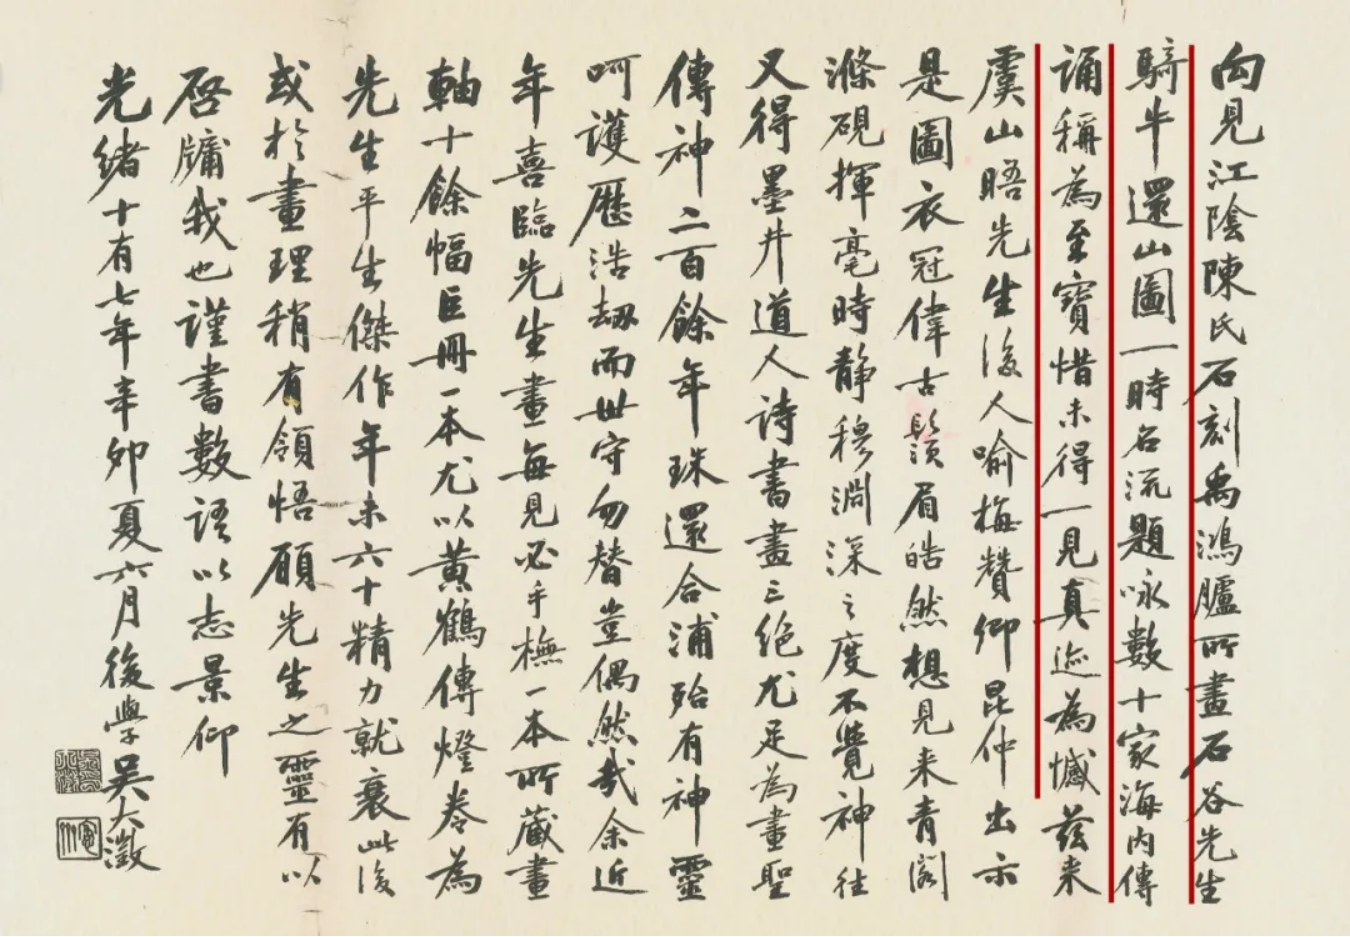 向見江陰陳氏石刻禹鴻臚所畫石谷先生
騎牛還山圖一時名流題咏數十家海内傳
誦稱為至寶惜未得一見真迹為憾茲来
虞山晤先生後人喻梅贊卿昆仲出示
是圖衣冠偉古鬚眉皓然想見来青閣
滌硯揮毫時静穆淵深之度不覺神往
又得墨井道人詩書畫三絶尤足為畫聖
傳神二百餘年珠還合浦殆有神靈
呵護歷浩劫而世守勿替豈偶然哉余近
年喜臨先生畫每見必手橅一本所藏畫
軸十餘幅巨冊一本尤以黄鶴傳燈卷為
先生平生傑作年未六十精力就衰此後
或於畫理稍有領悟願先生之靈有以
啓牖我也謹書數語以志景仰
光緒十有七年辛卯夏六月後學吴大澂